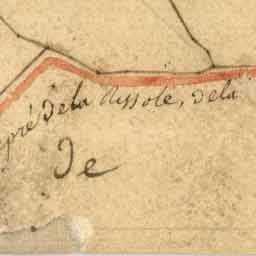 pré de la Rissole, dela
De